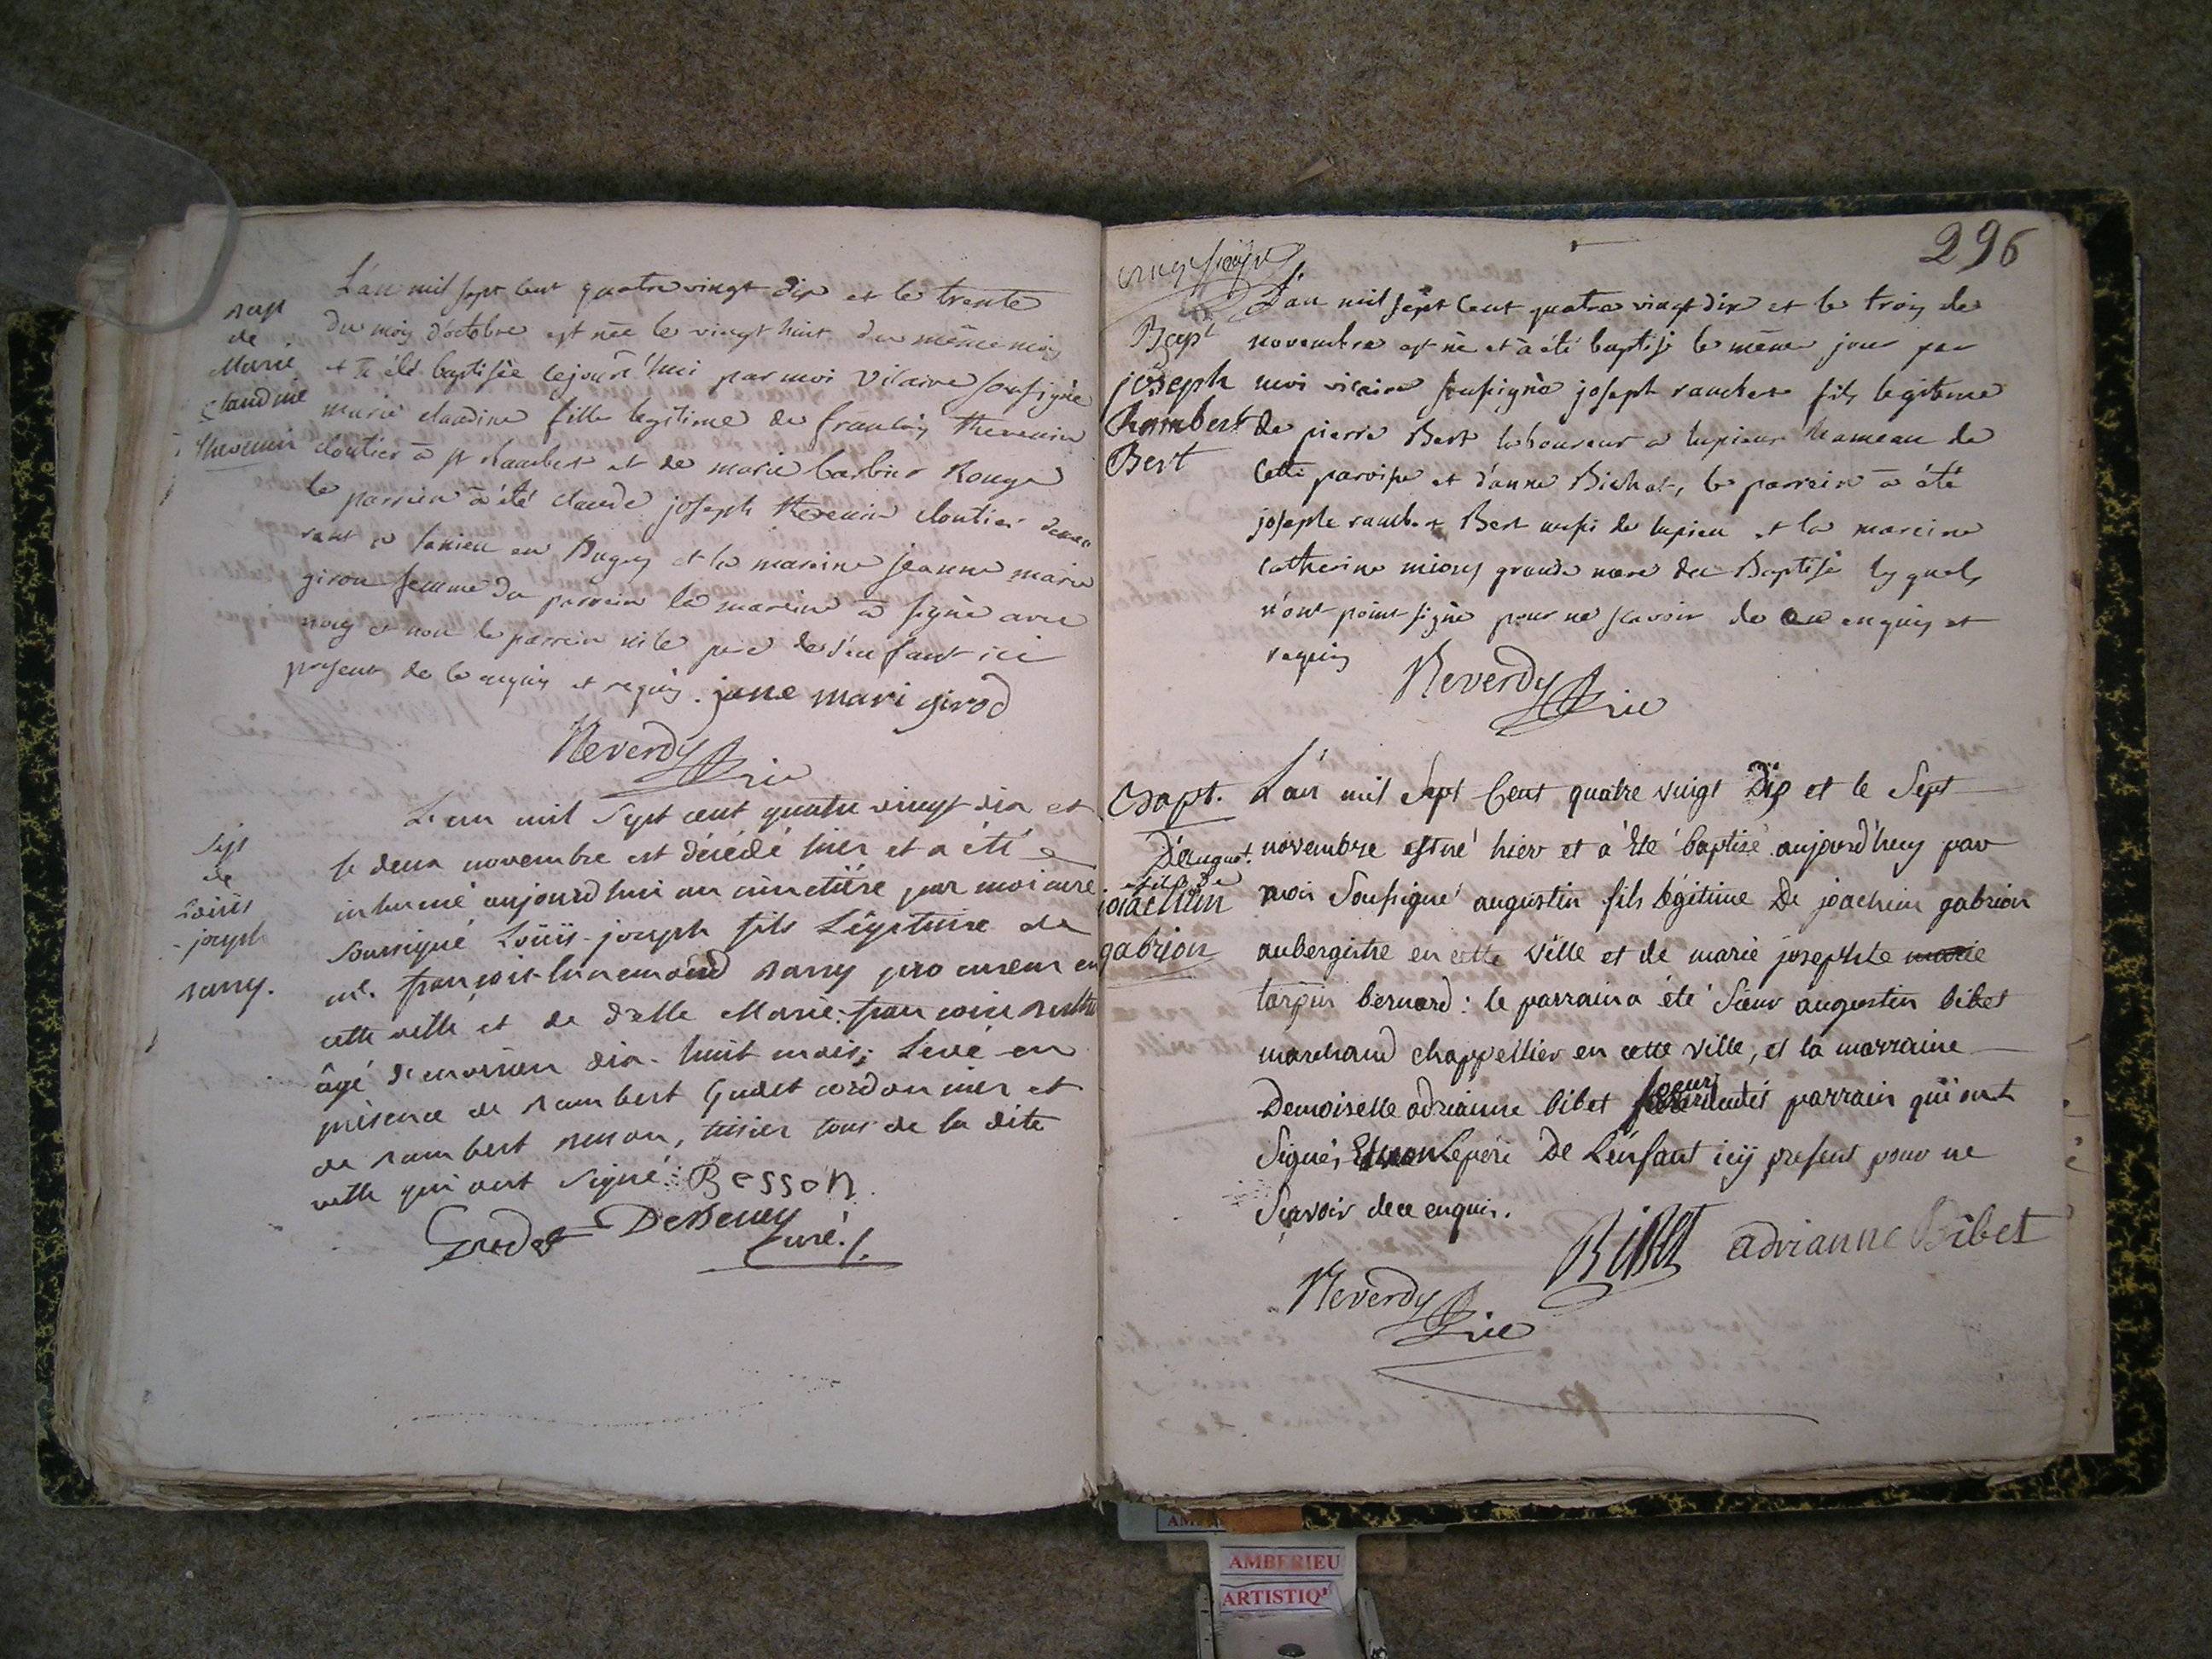 bapt
de
Marie
Claudine
thevenin
L'an mil sept cent quatre vingt dix et le trente
du mois d'octobre est née le vingt huit du même mois
et a été baptisée cejourd'hui par moi vicaire soussigné
marie claudine fille legitime de francois thevenin
cloutier à st Rambert et de marie barbier Rouge
le parrein à été claude joseph thevenin cloutier demeu
rant a en Bugey et la mareine jeanne marie
girou femme du parrein la mareine à signé avec
nous et non le parrein ni le pere de l'enfant ici
present de ce enquis et requis. jane mari girod
Reverdy vic
Sep
de
Loüis
joseph
L'an mil sept cent quatre vingt dix et
le deux novembre est décédé hier et a été
inhumé aujourd'hui au cimetière par moi curé
soussigné Loüis-joseph fils Légitime de
me. françois procureur en
cette ville et de dlle Marie françoise
âgé d'environ dix-huit mois; Levé en
présence de rambert Grudet cordonnier et
de rambert besson, tissier tous de la dite
ville qui ont signé: Besson
Grudet DeBeney
Curé.
296
Bapt
joseph
Rambert
Bert
L'an mil sept cent quatre vingt dix et le trois de
novembre est né et à été baptisé le même jour par
moi vicaire soussigné joseph rambert fils legitime
de pierre Bert laboureur a lupieu hameau de
cette paroisse et d'anne Bichat, le parrein à été
joseph rambert Bert aussi de lupieu et la mareine
catherine miory grande mere du Baptisé lesquels
n'ont point signé pour ne scavoir de ce enquis et
requis
Reverdy vic
Bapt.
D'august.
fils de
joachim
gabrion
L'an mil Sept Cent quatre vingt Dix et le Sept
novembre est né hier et a été baptisé aujourd'huy par
moi Soussigné augustin fils légitime De joachim gabrion
aubergiste en cette ville et de marie josephte marie
tarpin bernard: le parrain a été Sieur augustin bibet
marchand chappellier en cette ville, et la marraine
Demoiselle adrianne bibet soeur dudit parrain qui ont
Signé, Et non Lepère De L'enfant icy present pour ne
Scavoir de ce enquis.
Bibet adrianne Bibet
Reverdy vic
AMBERIEU
ARTISTIQ'